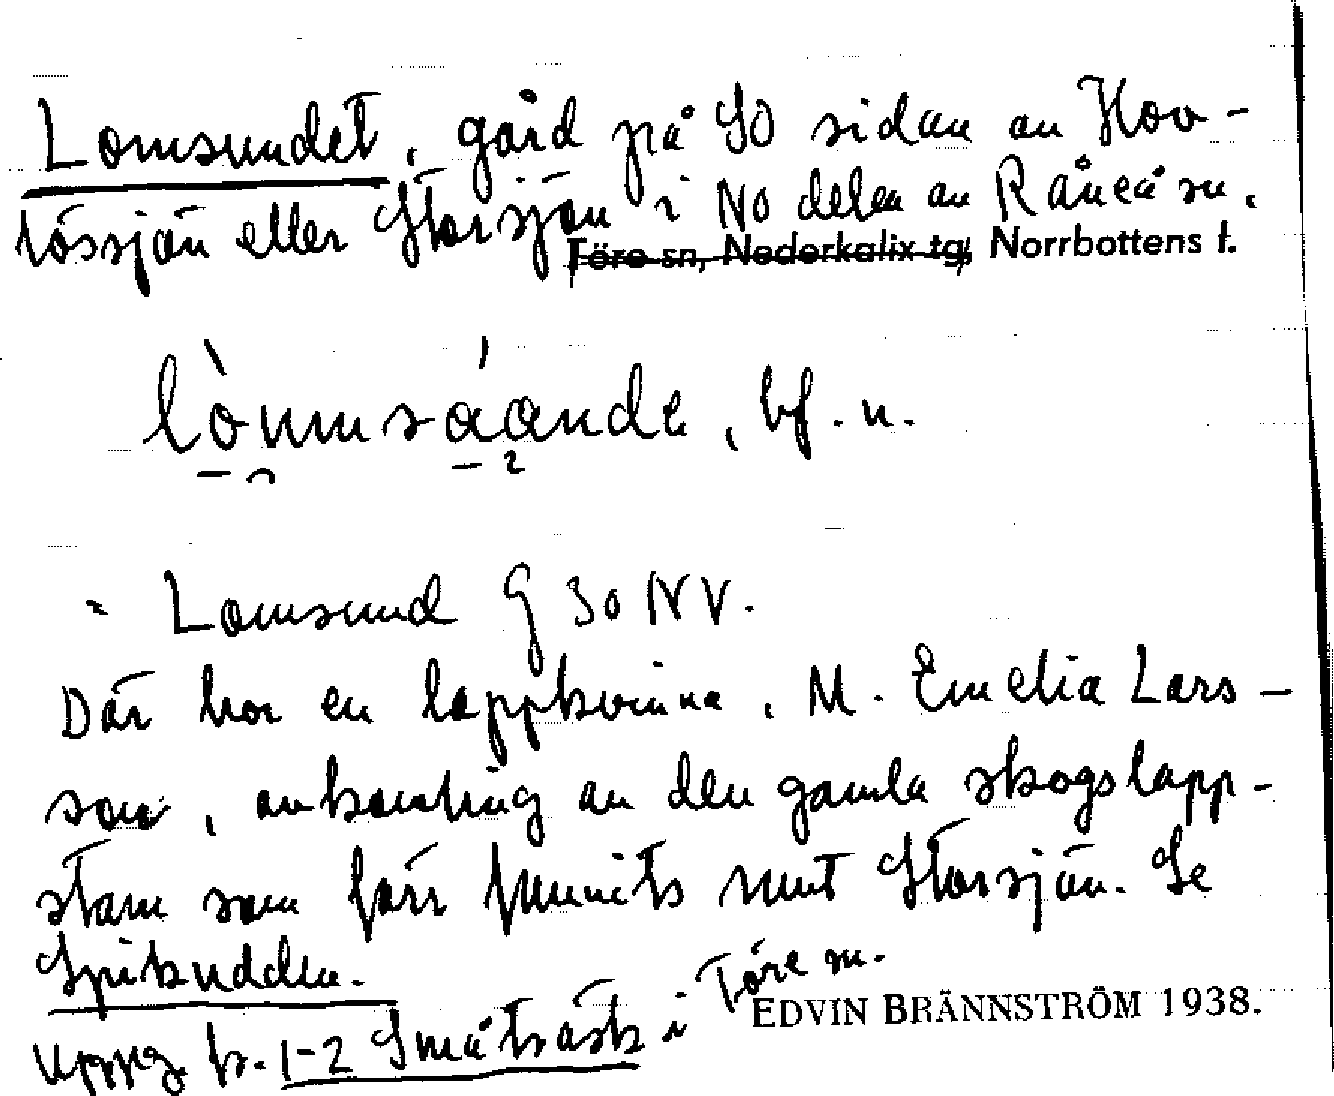 Lomsundet, gård på SO sidan av Hov-
lössjön eller Storsjön i NO delen av Råneå sn.
Töre sn, Nederkalix tg, Norrbottens l.
lò̱mmsa̱ánde, bf. n.
= Lomsund G 30 NV.
Där bor en lappkvinna, M. Emelia Lars-
son, avkomling av den gamla skogslapp-
stam som förr funnits runt Storsjön. Se
Spikudden.
Uppg. b. 1-2 Småträsk i Töre sn.
EDVIN BRÄNNSTRÖM 1938.